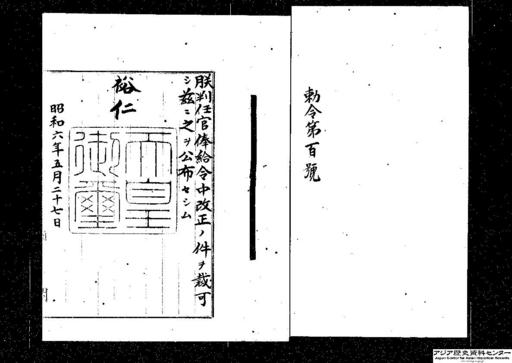 勅令第百號
朕判任官俸給令中改正ノ件ヲ裁可
シ茲ニ之ヲ公布セシム
裕仁
天皇
御璽
昭和六年五月二十七日
アジア歴史資料センター
Japan Center for Asian Historical Records